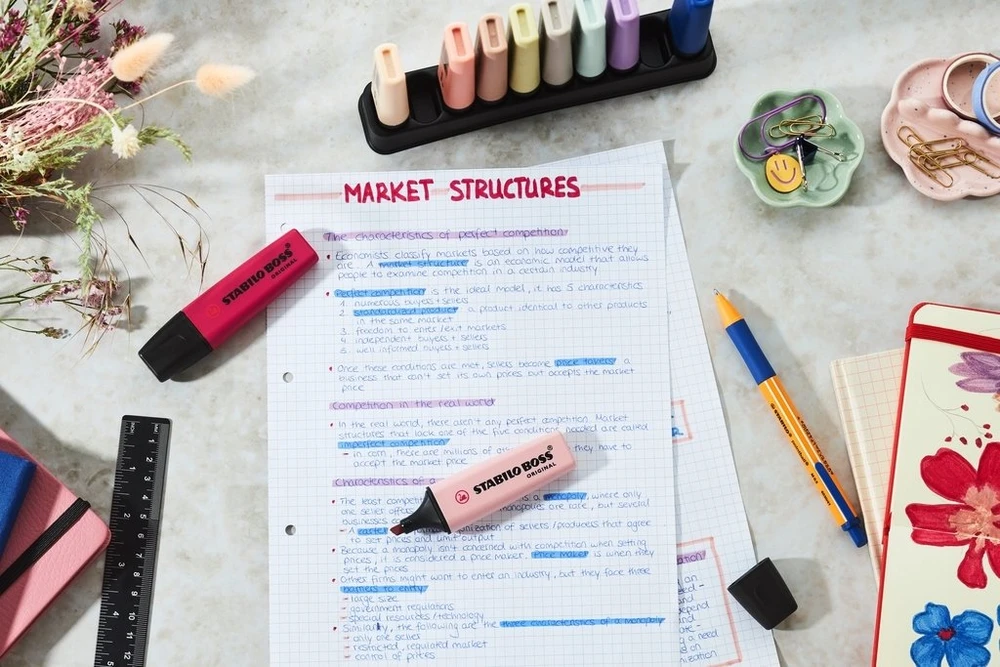 MARKET STRUCTURES
The characteristics of perfect competition
Economists classify markets based on how competitive they
are. A market structure is an economic model that allows
people to examine competition in a certain industry
Perfect competition is the ideal model, it has 5 characteristics
1. numerous buyers + sellers
2. standardized product: a product identical to other products
in the same market
3. freedom to enter/exit markets
4. independent buyers + sellers
5. well informed buyers + sellers
Once these conditions are met, sellers become price takers: a
business that can't set its own prices but accepts the market
price
Competition in the real world
In the real world, there aren't any perfect competition. Market
structures that lack one of the five conditions needed are called
imperfect competition
- in corn, there are millions of they have to
accept the market price
Characteristics of a
The least competi is a monopoly, where only
one seller offers monopolies are rare, but several
businesses
- A cartel of sellers/products that agree
to set prices and limit output
Because a monopoly isn't concerned with competition when setting
prices, it is considered a price maker. Price maker is when they
set the prices
Other firms might want to enter an industry, but they face three
barriers to entry
- large size
- government regulations
- special resources/technology
Similarly, the following are the three characteristics of a monopoly
- only one seller
- restricted, regulated market
- control of prices
STABILO BOSS
ORIGINAL
STABILO BOSS
ORIGINAL
STABILO